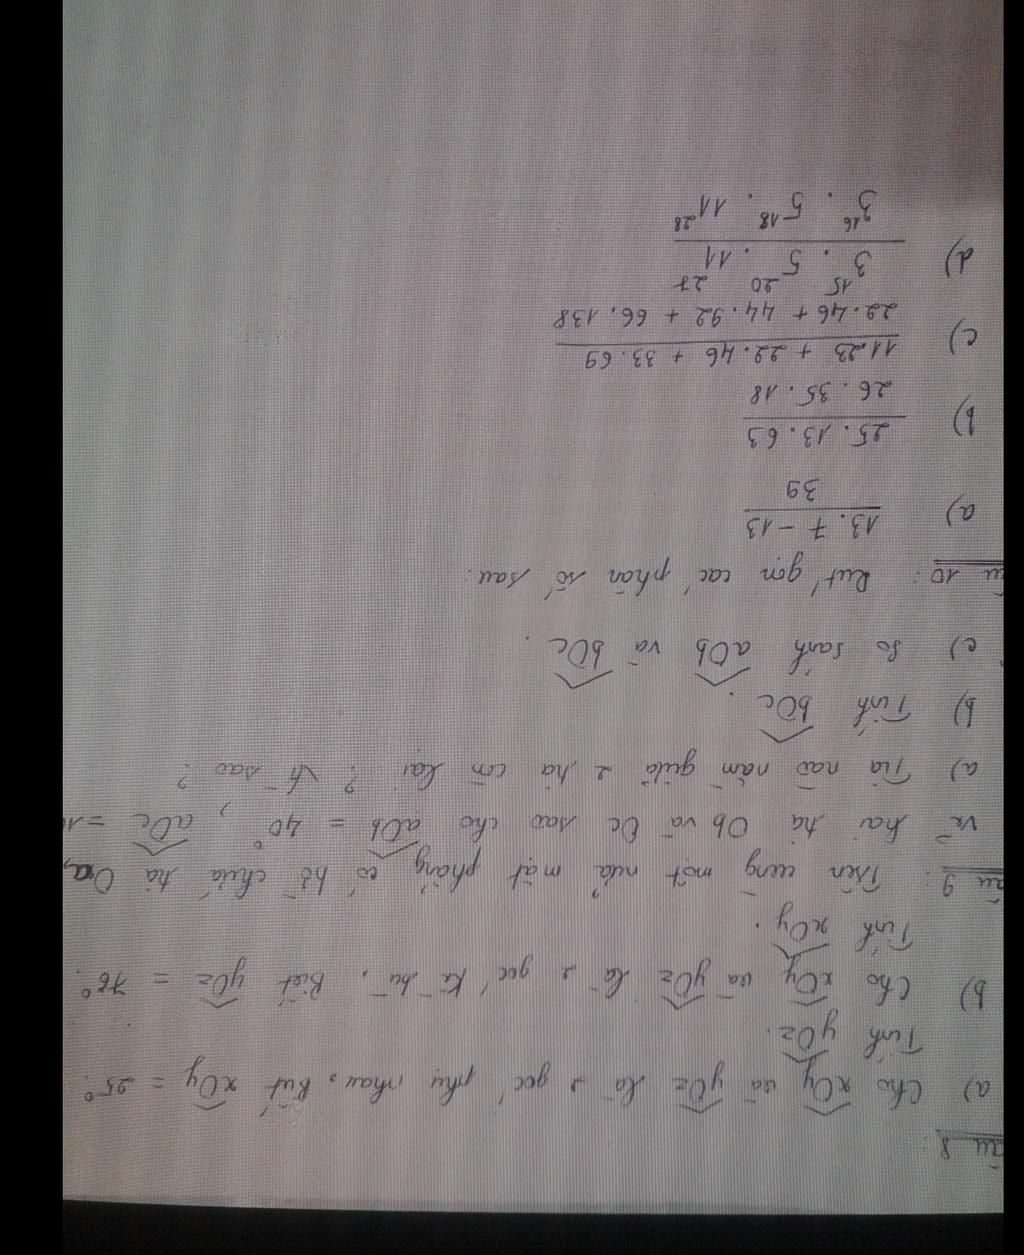 âu 8:
a) Cho xOy và yOz là 2 góc phụ nhau, Biết xOy = 25°.
Tính yOz.
b) Cho xOy và yOz là 2 góc kề bù, Biết yOz = 76°.
Tính xOy.
âu 9: Trên cùng một nửa mặt phẳng có bờ chứa tia Oa,
vẽ hai tia Ob và Oc sao cho aOb = 40°, aOc = 1
a) Tia nào nằm giữa 2 tia còn lại? Vì sao?
b) Tính bOc.
c) So sánh aOb và bOc.
âu 10: Rút gọn các phân số sau:
a) 13.7 - 13
39
b) 25.13.63
26.35.18
c) 11.23 + 22.46 + 33.69
22.46 + 44.92 + 66.138
d) 3^15 . 5^20 . 11^27
3^16 . 5^18 . 11^28